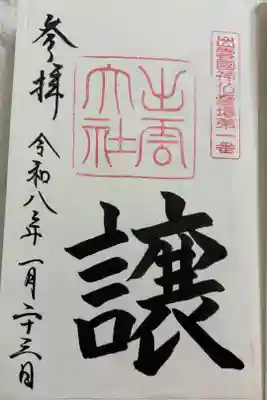 出雲國神仏霊場第一番
出雲
大社
譲
参拝
令和八年一月二十三日